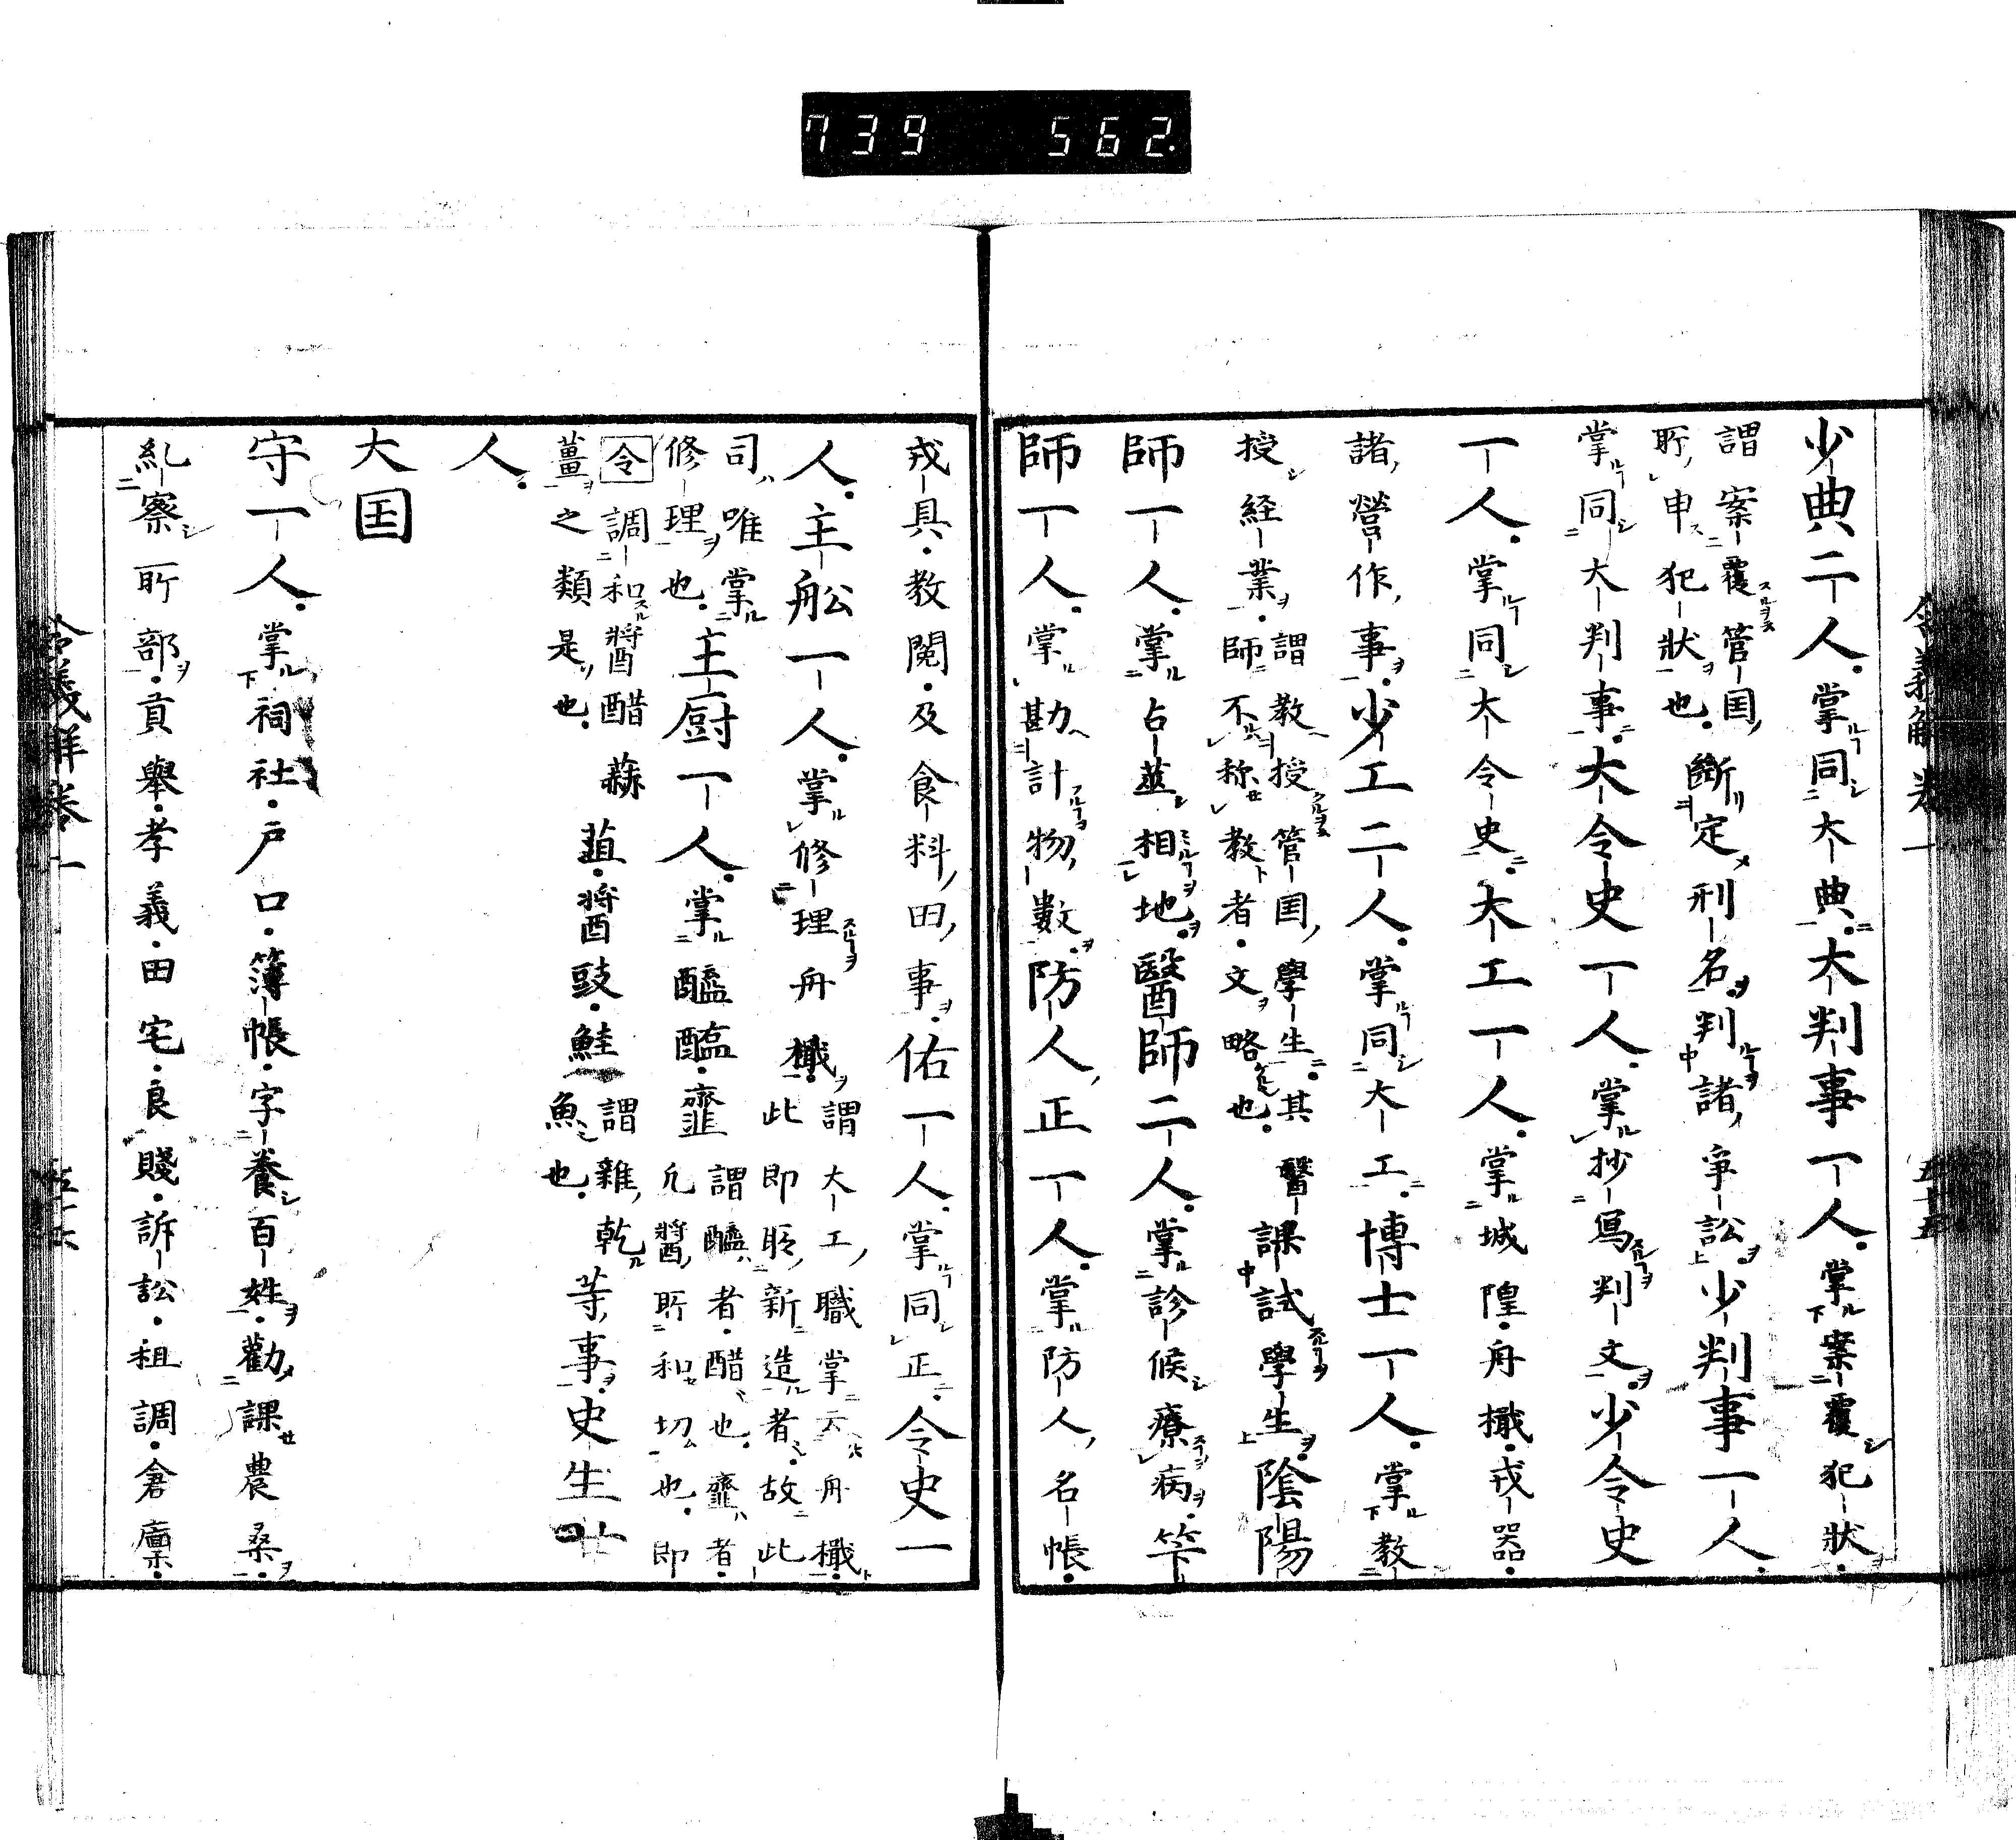 739 562
少典二人掌同大典大判事一人掌案覆犯狀
謂案覆管国
所申犯狀也
斷定刑名判諸爭訟少判事一人
掌同大判事大令史一人掌抄写判文少令史
一人掌同大令史大工一人掌城隍舟檝戎器
諸營作事少工二人掌同大工博士一人掌教
授経業
謂教授管国學生其
師不称教者文略也
課試學生陰陽
師一人掌占筮相地醫師二人掌診候療病筭
師一人掌勘計物數防人正一人掌防人名帳
令義解卷一 五十五
戎具教閱及食料田事佑一人掌同正令史一
人主舩一人掌修理舟檝
謂大工職掌云舟檝
此即所新造者故此
司唯掌
修理也
主厨一人掌醯醢韲
謂醯者醋也韲者
凢醬所和切也即
令調和醬醋蒜
薑之類是也
葅醬豉鮭
謂雜乾
魚也
等事史生廿
人
大国
守一人掌祠社戶口簿帳字養百姓勸課農桑
糺察所部貢舉孝義田宅良賤訴訟租調倉廩
令義解卷一 五十六